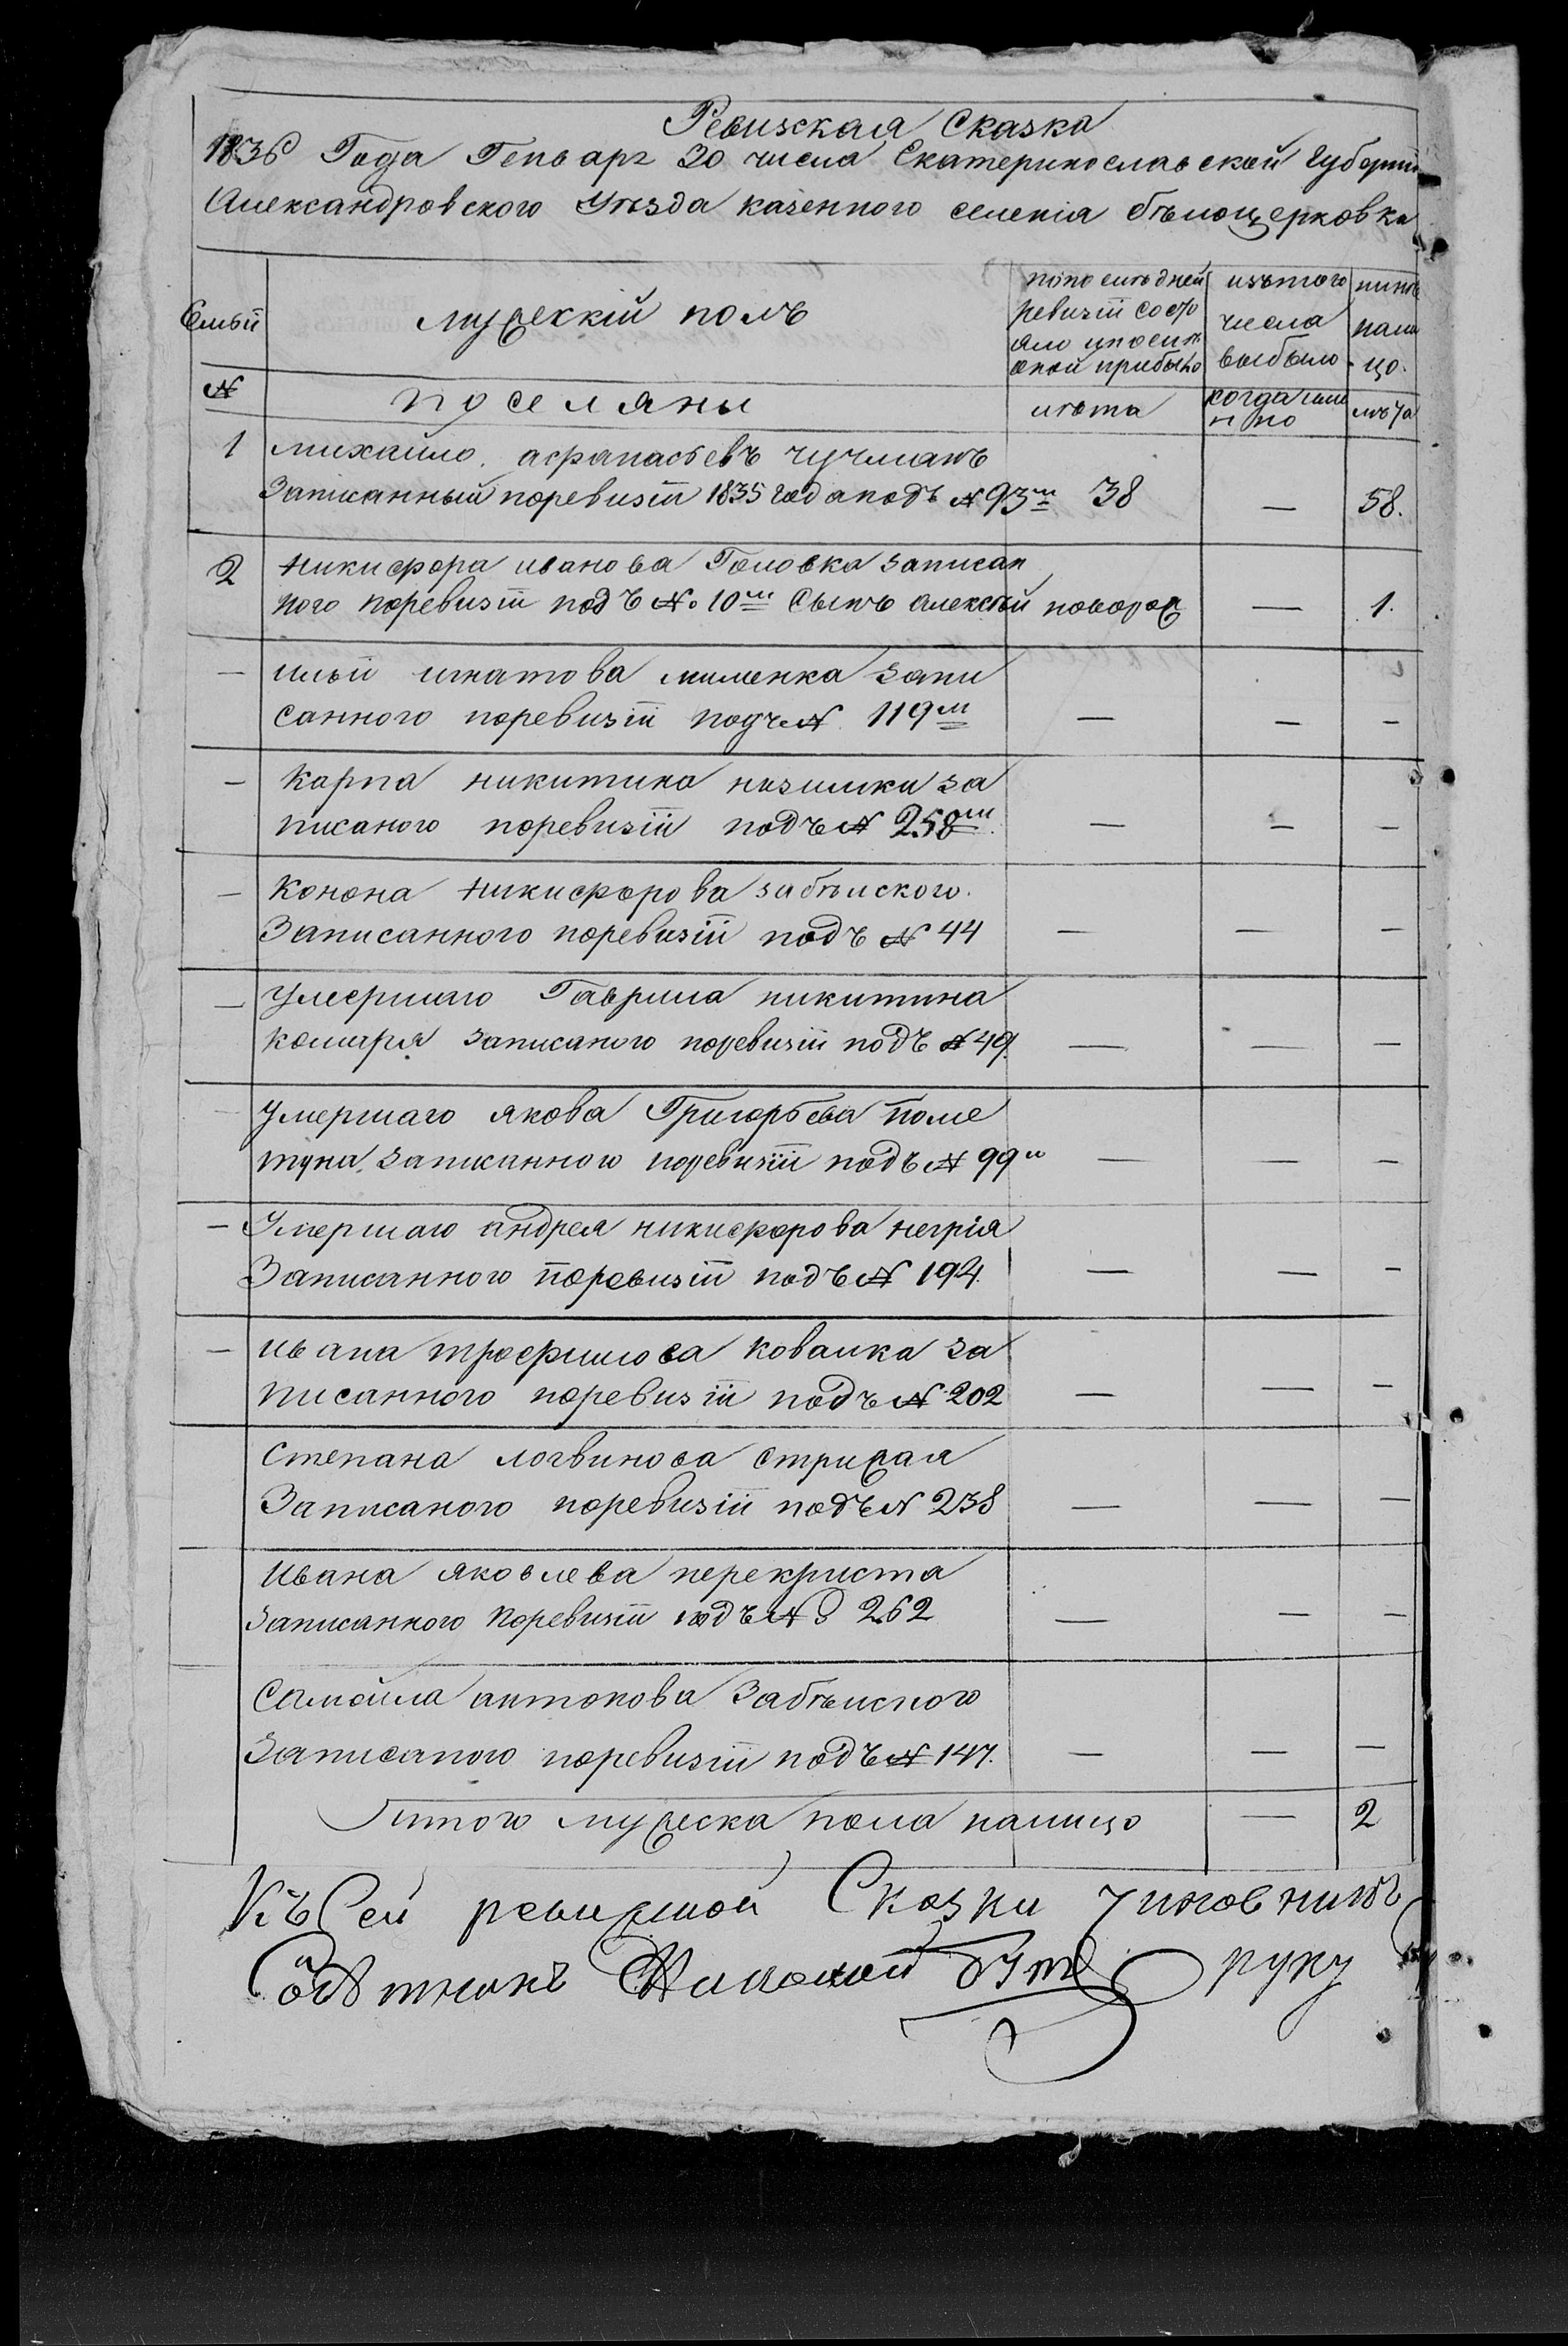 Ревизская Сказка
1836 Года Генваря 20 числа Екатеринославской Губернии
Александровского Уезда казенного селенія бѣлоцерковка
Семьи
мужескій полъ
по последней
ревизіи состо
яло и после
оной прибыло
изътого
числа
выбыло
ныне
нали
цо.
№
поселяны
лѣта
когда имен
но
лѣта
1 михайло афанасьевъ чучманъ
Записанный поревизіи 1835 года подъ № 93м 38 — 58.
2 никифора иванова Головка записан
ного поревизіи подъ №. 10м Сынъ алексѣй новорож — 1.
— ильи игнатова миленка запи
санного поревизіи подъ № 119м — — —
— Карпа никитина
писаного поревизіи подъ № 258м — — —
— Конона никифорова забѣлского.
Записанного поревизіи подъ № 44 — — —
— Умершаго Гаврила никитина
комаря записаного поревизіи подъ № 49. — — —
Умершаго якова Григорьева поле
туна записанного поревизіи подъ № 99м — — —
— Умершаго андрея никифорова негрія
Записанного поревизіи подъ № 194. — — —
— ивана трофимова ковалка за
писанного поревизіи подъ № 202 — — —
степана логвинова стрижая
Записаного поревизіи подъ № 238 — — —
Ивана яковлева перекриста
записанного поревизіи подъ № 262 — — —
Самойла антонова Забѣлского
Записаного поревизіи подъ № 147. — — —
Итого мужеска пола налицо — 2
Къ Сей ревизкой Сказки чиновникъ
руку